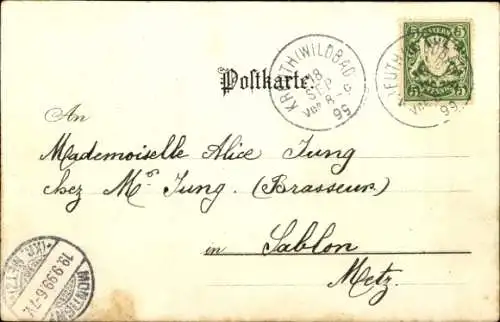 Postkarte.
KREUTH(WILDBAD)
18
SEP
8-
99
BAYERN
5 5
PFENNIG
99
An
Mademoiselle Alice Jung
chez Mr. Jung. (Brasseur)
in Sablon
Metz.
19.9.99.6-7V.
(KR. METZ)